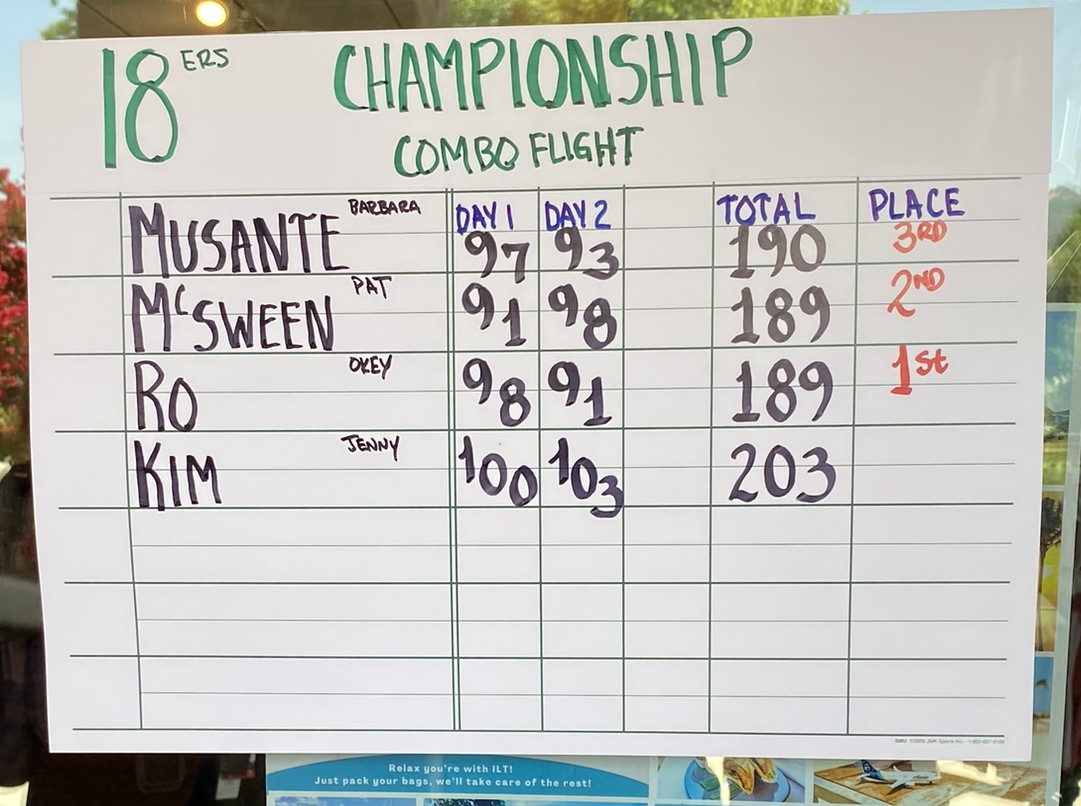 18 ERS CHAMPIONSHIP
COMBO FLIGHT
DAY 1 DAY 2 TOTAL PLACE
MUSANTE BARBARA 97 93 190 3RD
McSWEEN PAT 91 98 189 2ND
RO OKEY 98 91 189 1st
KIM JENNY 100 103 203
Relax you're with ILT!
Just pack your bags, we'll take care of the rest!